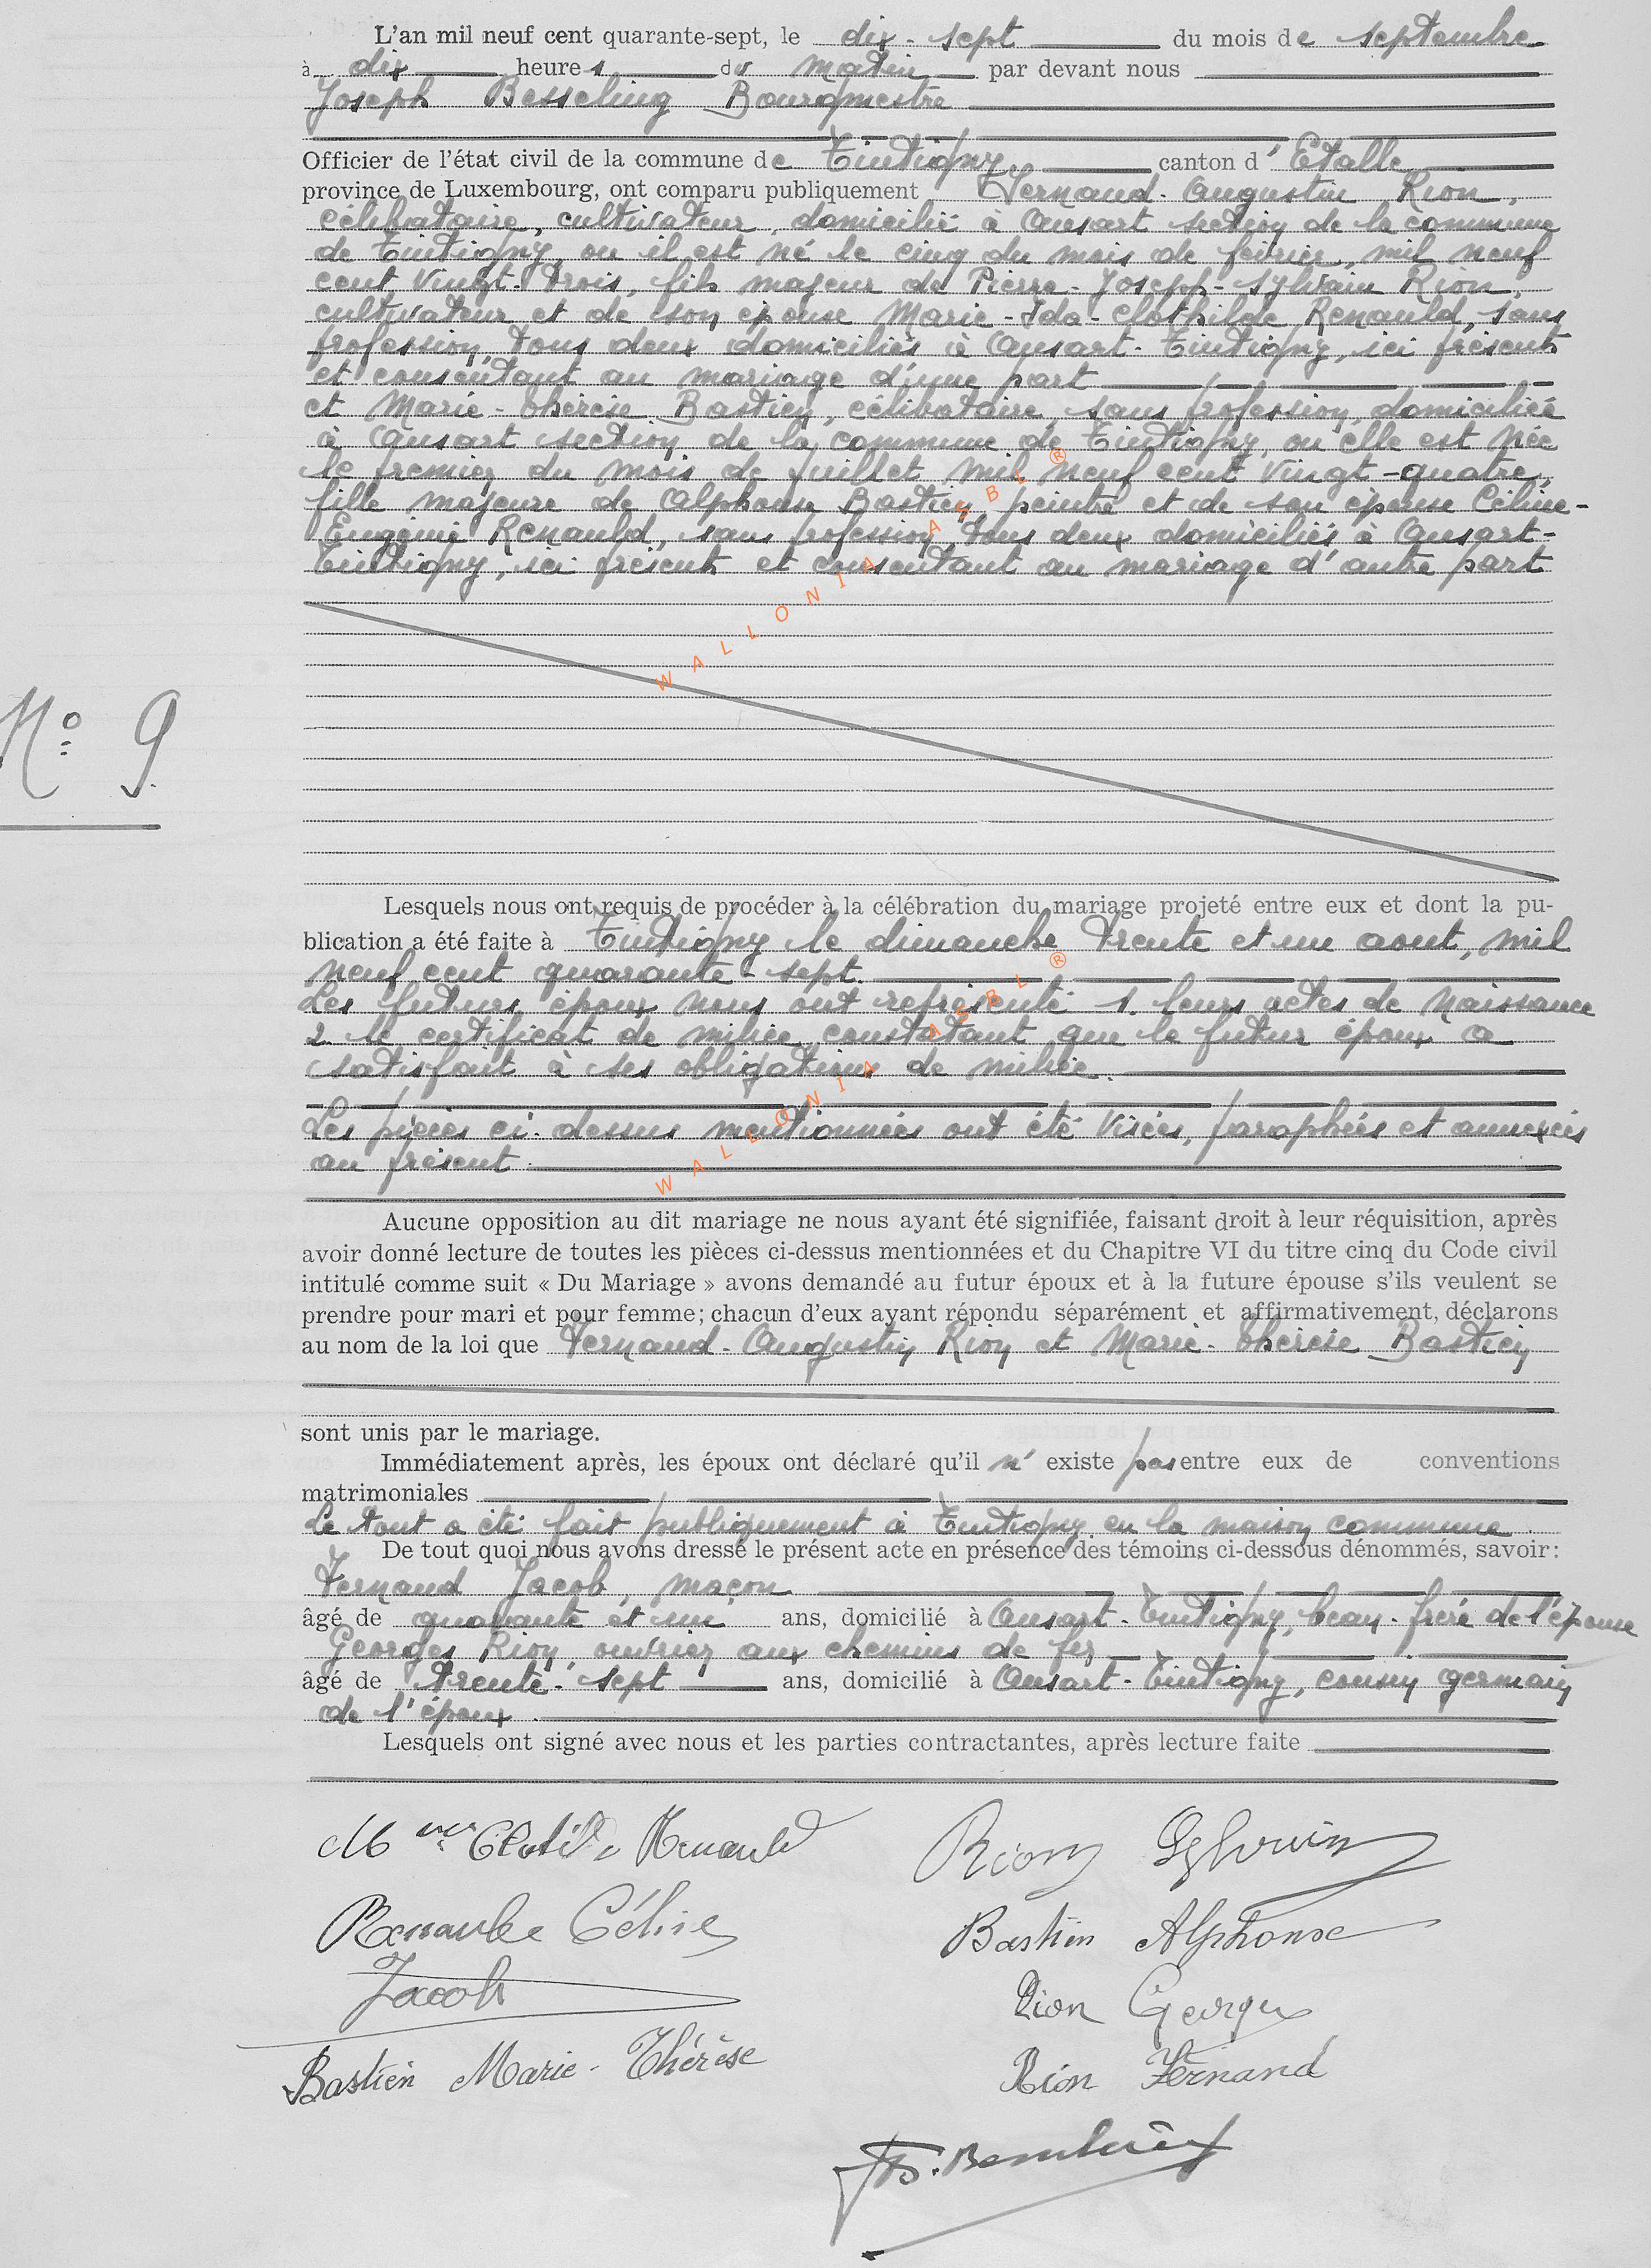 L'an mil neuf cent quarante-sept, le dix-sept du mois de septembre
à dix heures du matin par devant nous
Joseph Besseling Bourgmestre
Officier de l'état civil de la commune de Tintigny canton d'Etalle
province de Luxembourg, ont comparu publiquement Fernand-Augustin Rion,
célibataire, cultivateur, domicilié à Ansart section de la commune
de Tintigny, ou il est né le cinq du mois de février, mil neuf
cent vingt-trois, fils majeur de Pierre-Joseph-Sylvain Rion,
cultivateur et de son épouse Marie-Ida-Clothilde Renauld, sans
profession, tous deux domiciliés à Ansart-Tintigny, ici présents
et consentant au mariage d'une part
et Marie-Thérèse Bastien, célibataire, sans profession, domiciliée
à Ansart section de la commune de Tintigny, ou elle est née
le premier du mois de juillet mil neuf cent vingt-quatre,
fille majeure de Alphonse Bastien, peintre et de son épouse Céline-
Eugénie Renauld, sans profession, tous deux domiciliés à Ansart-
Tintigny, ici présents et consentant au mariage d'autre part
WALLONIA ASBL ®
N° 9
Lesquels nous ont requis de procéder à la célébration du mariage projeté entre eux et dont la pu-
blication a été faite à Tintigny le dimanche trente et un aout, mil
neuf cent quarante-sept.
Les futurs époux nous ont représenté 1. leurs actes de naissance
2. le certificat de milice constatant que le futur époux a
satisfait à ses obligations de milice.
Les pièces ci-dessus mentionnées ont été visées, paraphées et annexées
au présent.
WALLONIA ASBL ®
Aucune opposition au dit mariage ne nous ayant été signifiée, faisant droit à leur réquisition, après
avoir donné lecture de toutes les pièces ci-dessus mentionnées et du Chapitre VI du titre cinq du Code civil
intitulé comme suit « Du Mariage » avons demandé au futur époux et à la future épouse s'ils veulent se
prendre pour mari et pour femme; chacun d'eux ayant répondu séparément et affirmativement, déclarons
au nom de la loi que Fernand-Augustin Rion et Marie-Thérèse Bastien
sont unis par le mariage.
Immédiatement après, les époux ont déclaré qu'il n'existe pas entre eux de conventions
matrimoniales
Le tout a été fait publiquement à Tintigny en la maison commune.
De tout quoi nous avons dressé le présent acte en présence des témoins ci-dessous dénommés, savoir:
Fernand Jacob, maçon
âgé de quarante et un ans, domicilié à Ansart-Tintigny, beau-frère de l'épouse
Georges Rion, ouvrier aux chemins de fer
âgé de trente-sept ans, domicilié à Ansart-Tintigny, cousin germain
de l'époux.
Lesquels ont signé avec nous et les parties contractantes, après lecture faite
Clotilde Renauld Rion Sylvain
Céline Bastien Alphonse
Jacob Rion Georges
Bastien Marie-Thérèse Rion Fernand